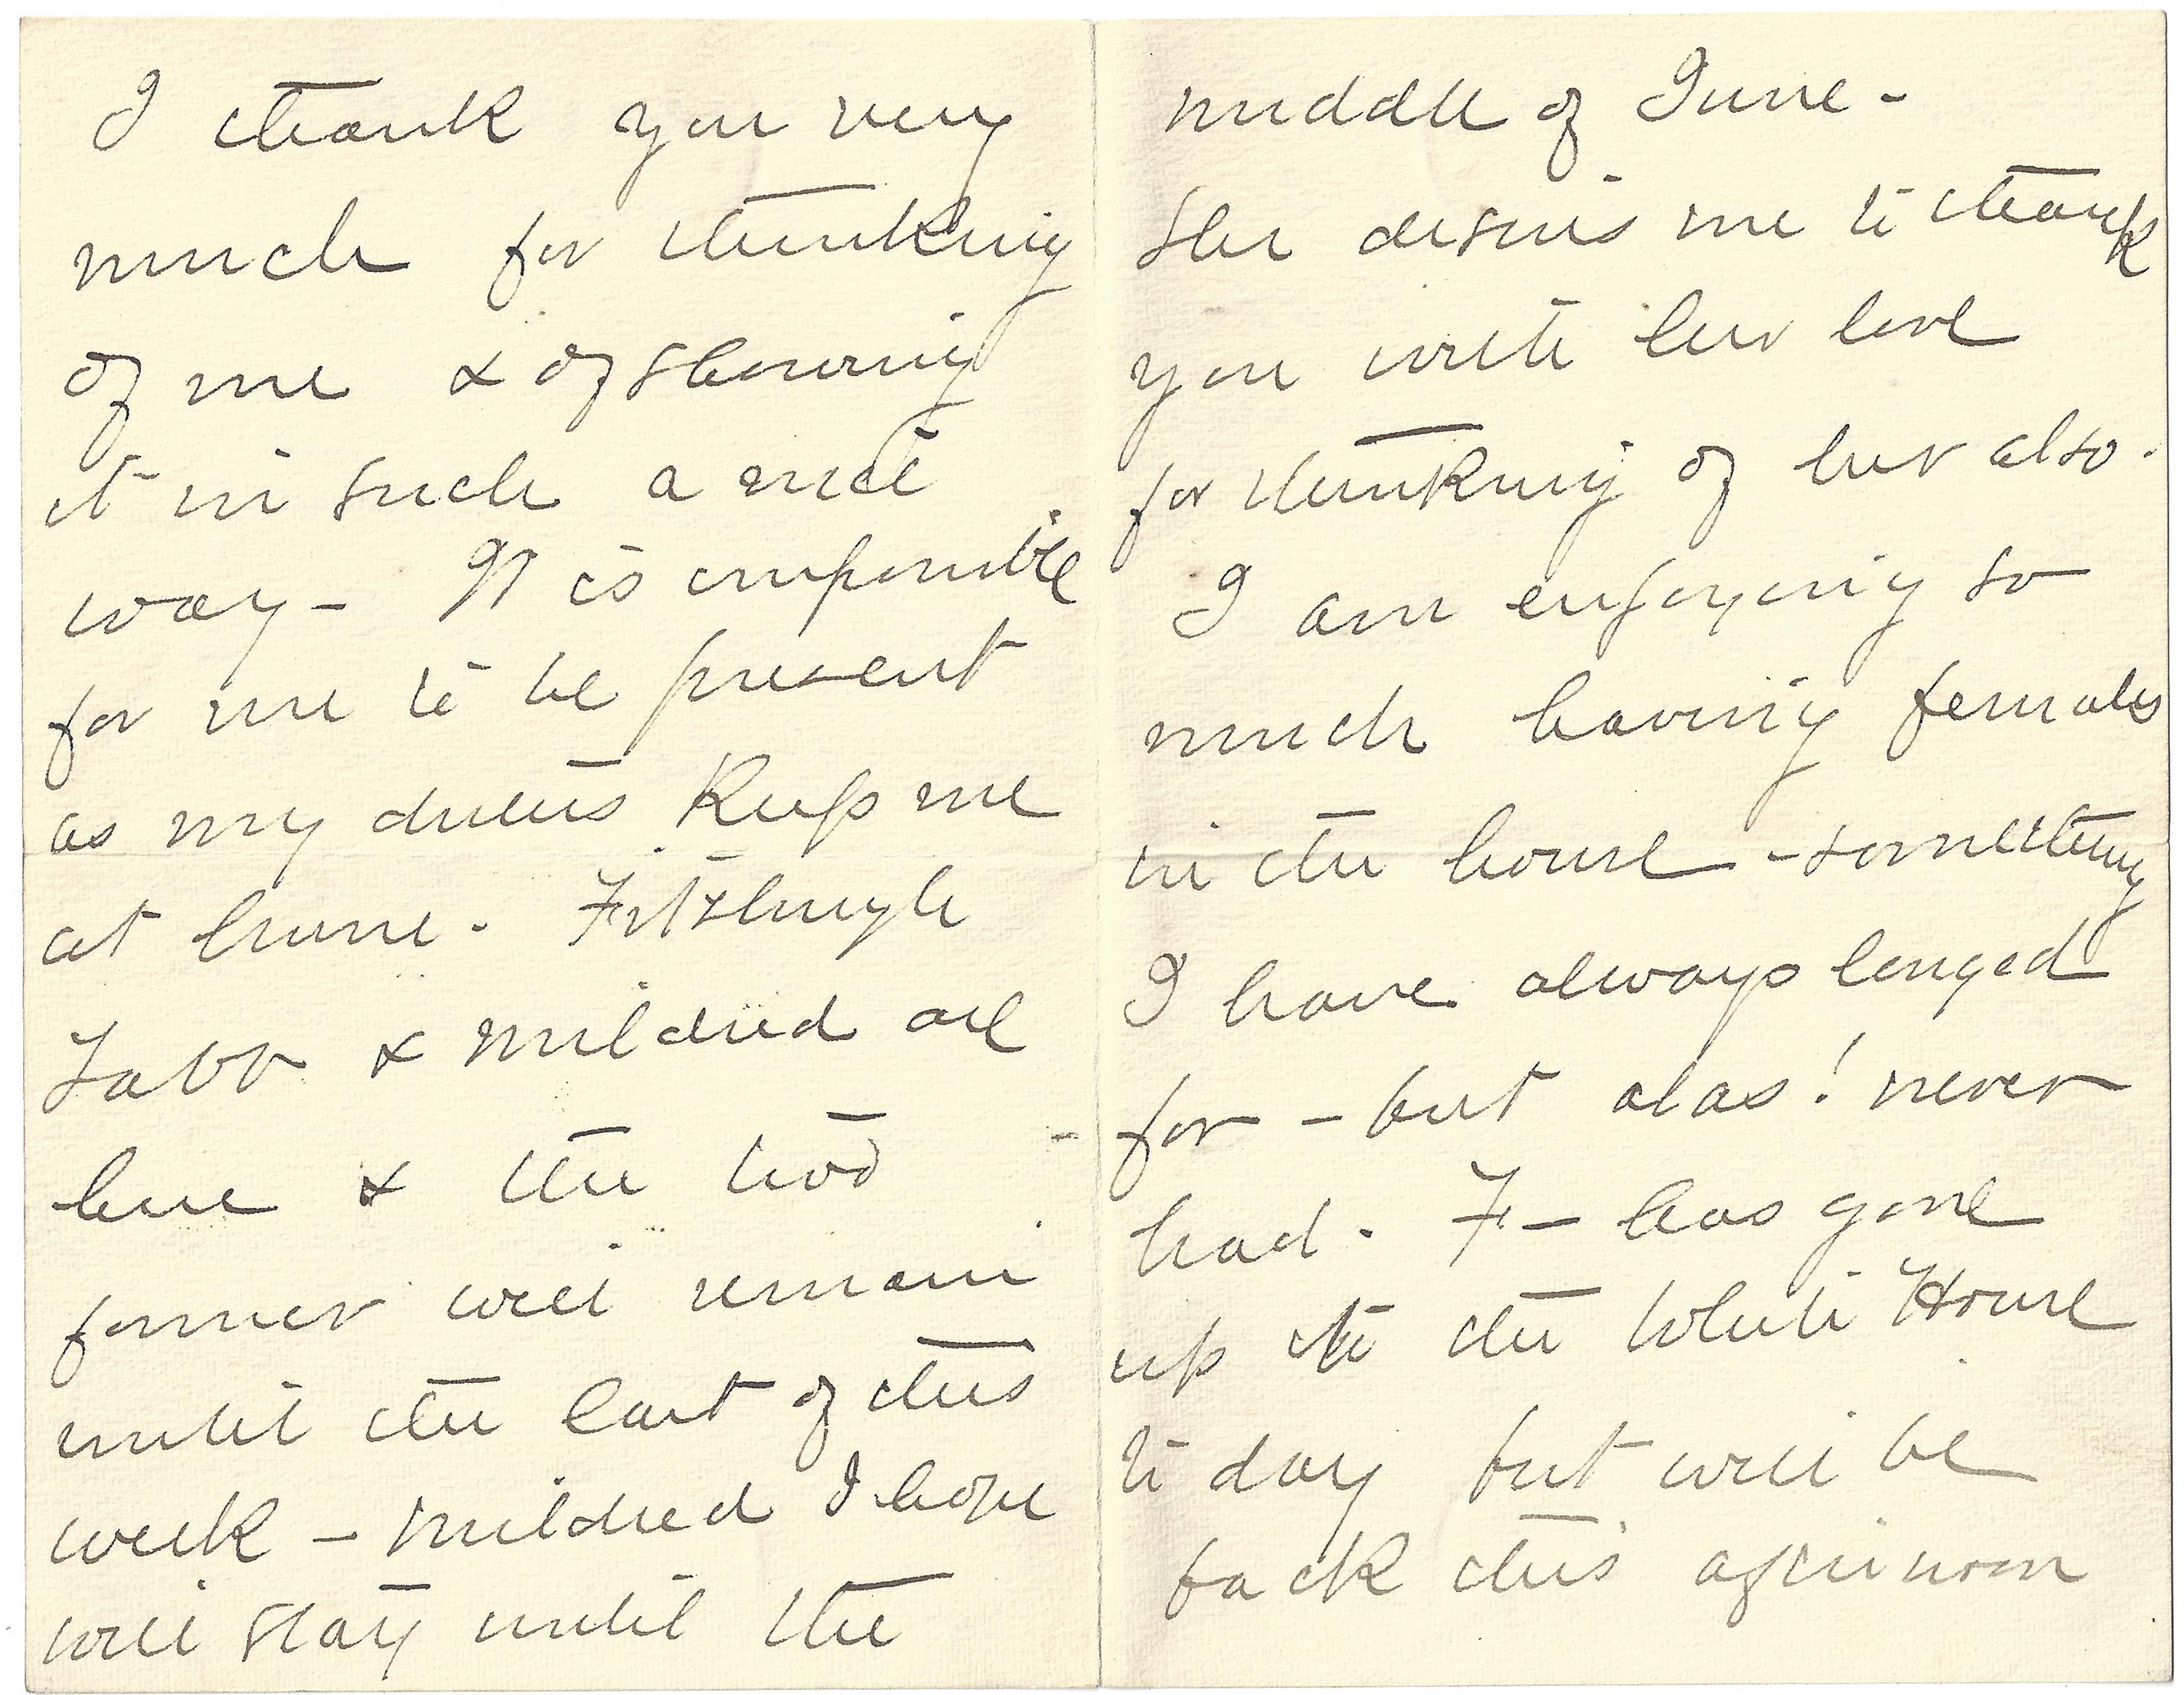 I thank you very
much for thinking
of me & of showing
it in such a nice
way - It is impossible
for me to be present
as my duties keep me
at home. Fitzhugh
Tabb & Mildred are
here & the two
former will remain
until the last of this
week - Mildred I hope
will stay until the
middle of June -
She desires me to thank
you with her love
for thinking of her also.
I am enjoying so
much having females
in the house - something
I have always longed
for - but alas! never
had. F - has gone
up to the White House
to day but will be
back this afternoon